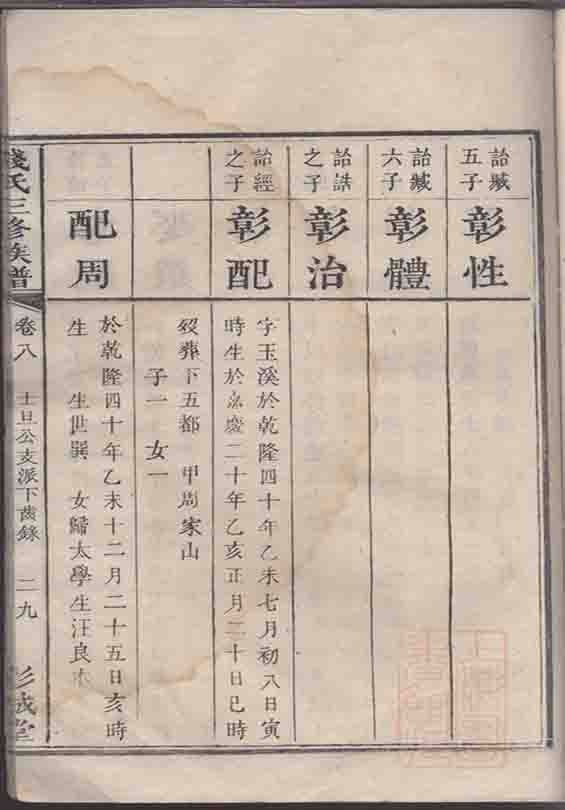 詒臧
五子
彰性
詒臧
六子
彰體
詒誥
之子
彰治
詒經
之子
彰配
字玉溪於乾隆四十年乙未七月初八日寅
時生於嘉慶二十年乙亥正月二十日巳時
歿葬下五都 甲周家山
子一 女一
配周
於乾隆四十年乙未十二月二十五日亥時
生 生世巽 女歸太學生汪良
錢氏三修族譜
卷八
士旦公支派下齒錄
二九
彭城堂